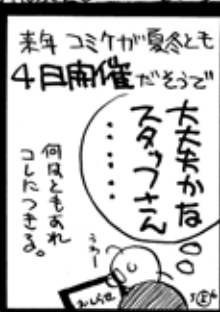 来年コミケが夏冬とも
4日開催だそうで
大丈夫かな
スタッフさん
・・・・・
何はともあれ
コレにつきる。
うぬー
おしらせ